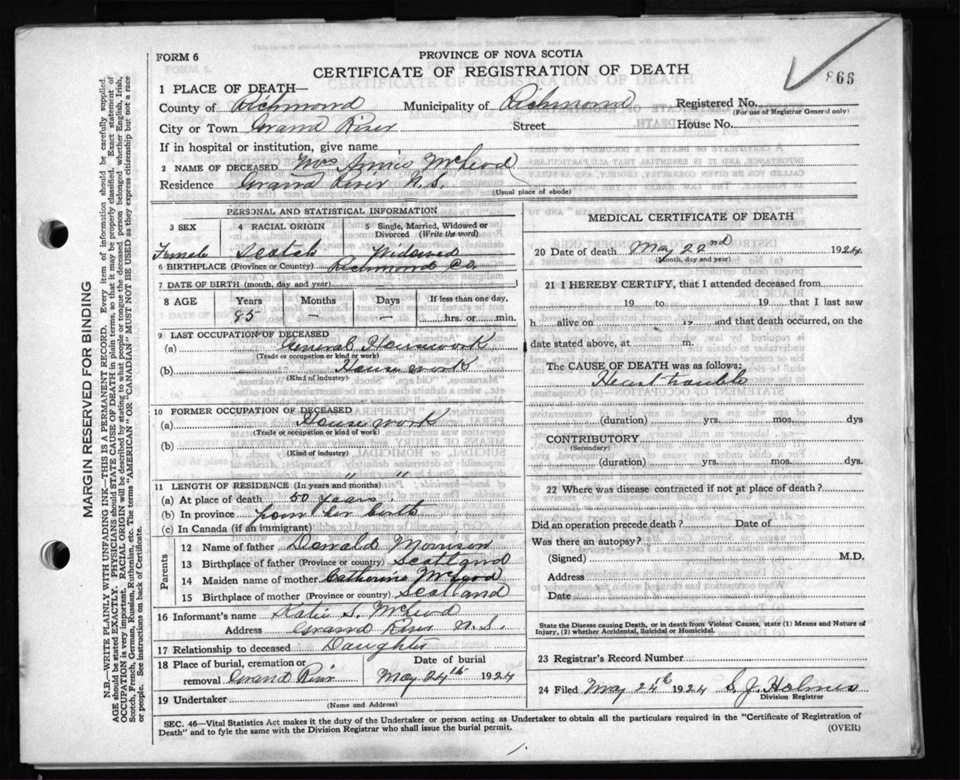 FORM 6
PROVINCE OF NOVA SCOTIA
CERTIFICATE OF REGISTRATION OF DEATH
866
1 PLACE OF DEATH—
County of Richmond Municipality of Richmond Registered No.
(For use of Registrar General only)
City or Town Grand River Street House No.
If in hospital or institution, give name
2 NAME OF DECEASED Mrs Annie McLeod
Residence Grand River N.S.
(Usual place of abode)
PERSONAL AND STATISTICAL INFORMATION
3 SEX 4 RACIAL ORIGIN 5 Single, Married, Widowed or Divorced (Write the word)
Female Scotch Widowed
6 BIRTHPLACE (Province or Country) Richmond Co.
7 DATE OF BIRTH (month, day and year)
8 AGE Years Months Days If less than one day,
85 — — hrs. or min.
9 LAST OCCUPATION OF DECEASED
(a) General Housework
(Trade or occupation or kind of work)
(b) House work
(Kind of industry)
10 FORMER OCCUPATION OF DECEASED
(a) House work
(Trade or occupation or kind of work)
(b)
(Kind of industry)
11 LENGTH OF RESIDENCE (In years and months)
(a) At place of death 50 years
(b) In province from her birth
(c) In Canada (if an immigrant)
Parents
12 Name of father Donald Morrison
13 Birthplace of father (Province or country) Scotland
14 Maiden name of mother Catherine McLeod
15 Birthplace of mother (Province or country) Scotland
16 Informant's name Katie S. McLeod
Address Grand River N.S.
17 Relationship to deceased Daughter
18 Place of burial, cremation or removal Grand River Date of burial May 24th 1924
19 Undertaker
(Name and Address)
MEDICAL CERTIFICATE OF DEATH
20 Date of death May 22nd 1924
(Month, day and year)
21 I HEREBY CERTIFY, that I attended deceased from
19 to 19 that I last saw
h alive on 19 and that death occurred, on
date stated above, at m.
The CAUSE OF DEATH was as follows:
Heart trouble
(duration) yrs. mos. dys
CONTRIBUTORY
(Secondary)
(duration) yrs. mos. dys.
22 Where was disease contracted if not at place of death?
Did an operation precede death? Date of
Was there an autopsy?
(Signed) M.D.
Address
Date
State the Disease causing Death, or in death from Violent Causes, state (1) Means and Nature of Injury, (2) whether Accidental, Suicidal or Homicidal.
23 Registrar's Record Number
24 Filed May 24th 1924 S. J. Holmes
Division Registrar
SEC. 46—Vital Statistics Act makes it the duty of the Undertaker or person acting as Undertaker to obtain all the particulars required in the "Certificate of Registration of
Death" and to fyle the same with the Division Registrar who shall issue the burial permit.
(OVER)
MARGIN RESERVED FOR BINDING
N.B.—WRITE PLAINLY WITH UNFADING INK—THIS IS A PERMANENT RECORD. Every item of information should be carefully supplied.
AGE should be stated EXACTLY. PHYSICIANS should STATE CAUSE OF DEATH in plain terms, so that it may be properly classified. Exact statement of
OCCUPATION is very important. RACIAL ORIGIN will be described by stating to what people or tongue the deceased person belonged whether English, Irish,
Scotch, French, German, Russian, Ruthenian, etc. The terms "AMERICAN" OR "CANADIAN" MUST NOT BE USED as they express citizenship but not a race
or people. See instructions on back of Certificate.